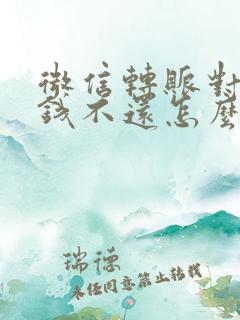 微信轉賬對
錢不還怎麼
瑞德
未经同意禁止转载